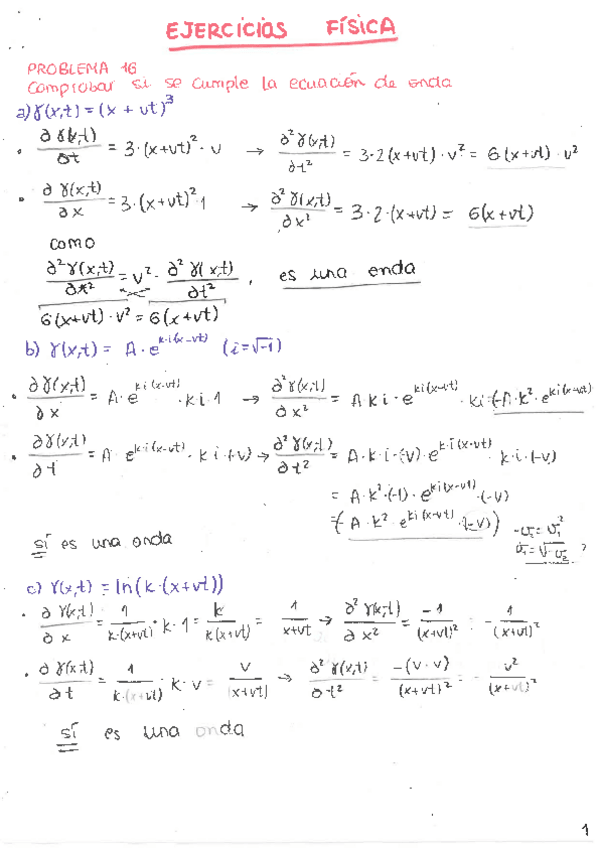 EJERCICIOS FÍSICA
PROBLEMA 16
Comprobar si se cumple la ecuación de onda
a) γ(x,t) = (x + vt)³
• ∂γ(x,t)/∂t = 3·(x+vt)²·v → ∂²γ(x,t)/∂t² = 3·2(x+vt)·v² = 6(x+vt)·v²
• ∂γ(x,t)/∂x = 3·(x+vt)²·1 → ∂²γ(x,t)/∂x² = 3·2·(x+vt) = 6(x+vt)
como
∂²γ(x,t)/∂x² = v²·∂²γ(x,t)/∂t², es una onda
6(x+vt)·v² = 6(x+vt)
b) γ(x,t) = A·e^(k·i(x-vt)) (i=√-1)
• ∂γ(x,t)/∂x = A·e^(ki(x-vt))·k·i·1 → ∂²γ(x,t)/∂x² = A·k·i·e^(ki(x-vt))·ki = (-A·k²·e^(ki(x-vt))
• ∂γ(x,t)/∂t = A·e^(k·i(x-vt))·k·i·(-v) → ∂²γ(x,t)/∂t² = A·k·i·(-v)·e^(k·i(x-vt))·k·i·(-v)
= A·k²·(-1)·e^(ki(x-vt))·(-v)
= (-A·k²·e^(ki(x-vt))·(-v))
sí es una onda
c) γ(x,t) = ln(k·(x+vt))
• ∂γ(x,t)/∂x = 1/k·(x+vt)·k·1 = k/k(x+vt) = 1/x+vt → ∂²γ(x,t)/∂x² = -1/(x+vt)² = -1/(x+vt)²
• ∂γ(x,t)/∂t = 1/k·(x+vt)·k·v = v/(x+vt) → ∂²γ(x,t)/∂t² = -(v·v)/(x+vt)² = -v²/(x+vt)²
sí es una onda
1